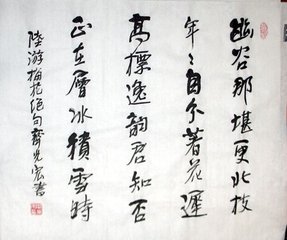 幽谷那堪更北枝
年々自分著花遲
高標逸韻君知否
正在層冰積雪時
陸游梅花絕句齊光宏書